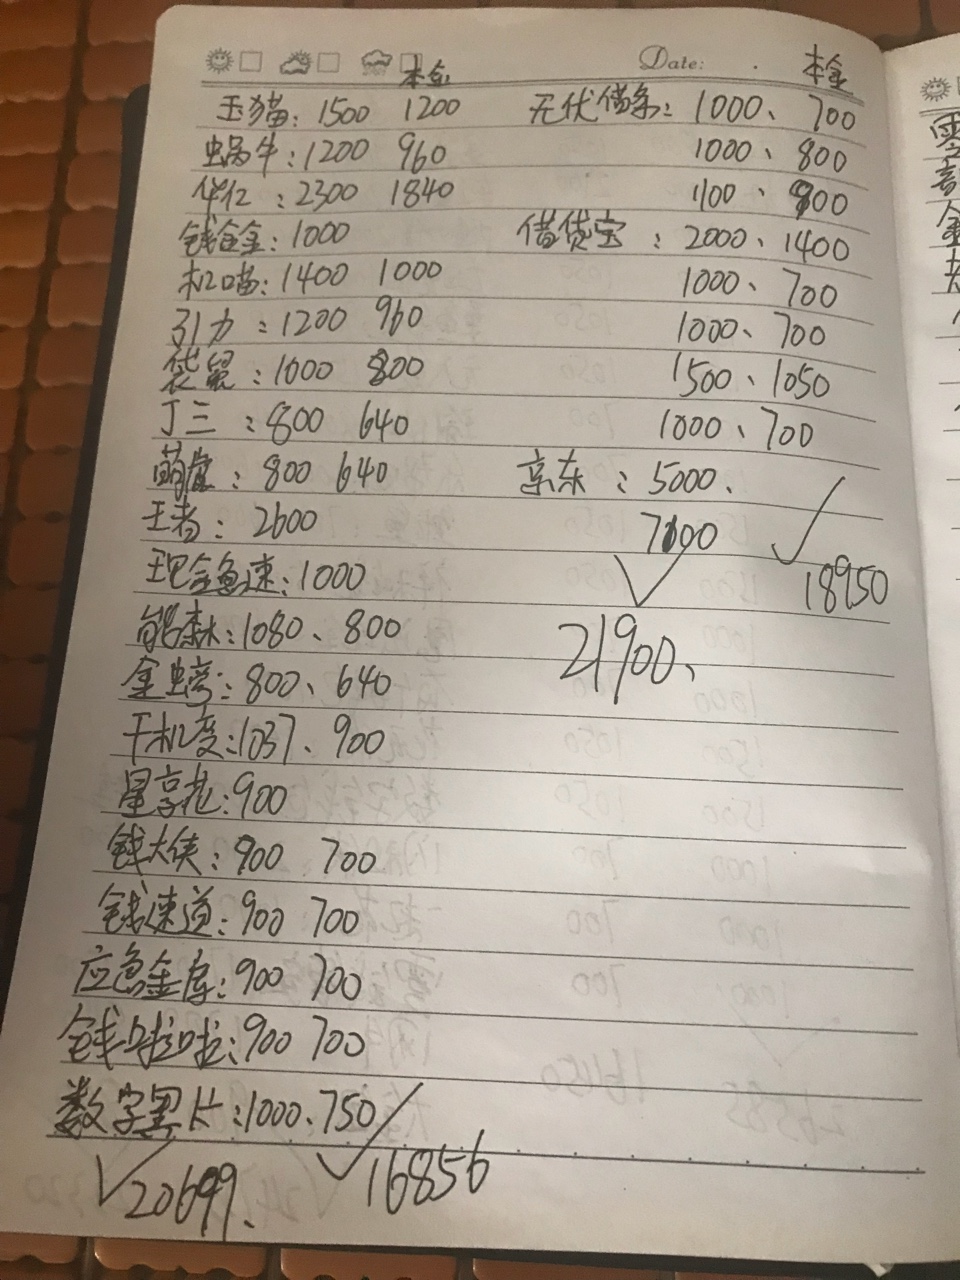 Date:
本金
本金
玉猫：1500 1200
蜗牛：1200 960
华仁：2300 1840
钱盒金：1000
机喵：1400 1000
引力：1200 960
袋鼠：1000 800
丁三：800 640
萌盧：800 640
王者：2600
现金急速：1000
能森林：1080、800
金螃：800、640
千机变：1037、900
星享花：900
钱大侠：900 700
钱速道：900 700
应急金库：900 700
钱啦啦：900 700
数字黑卡：1000、750
20699、
16856
无优借条：1000、700
1000、800
1100、800
借贷宝：2000、1400
1000、700
1000、700
1500、1050
1000、700
京东：5000、
7100
18950
21900、